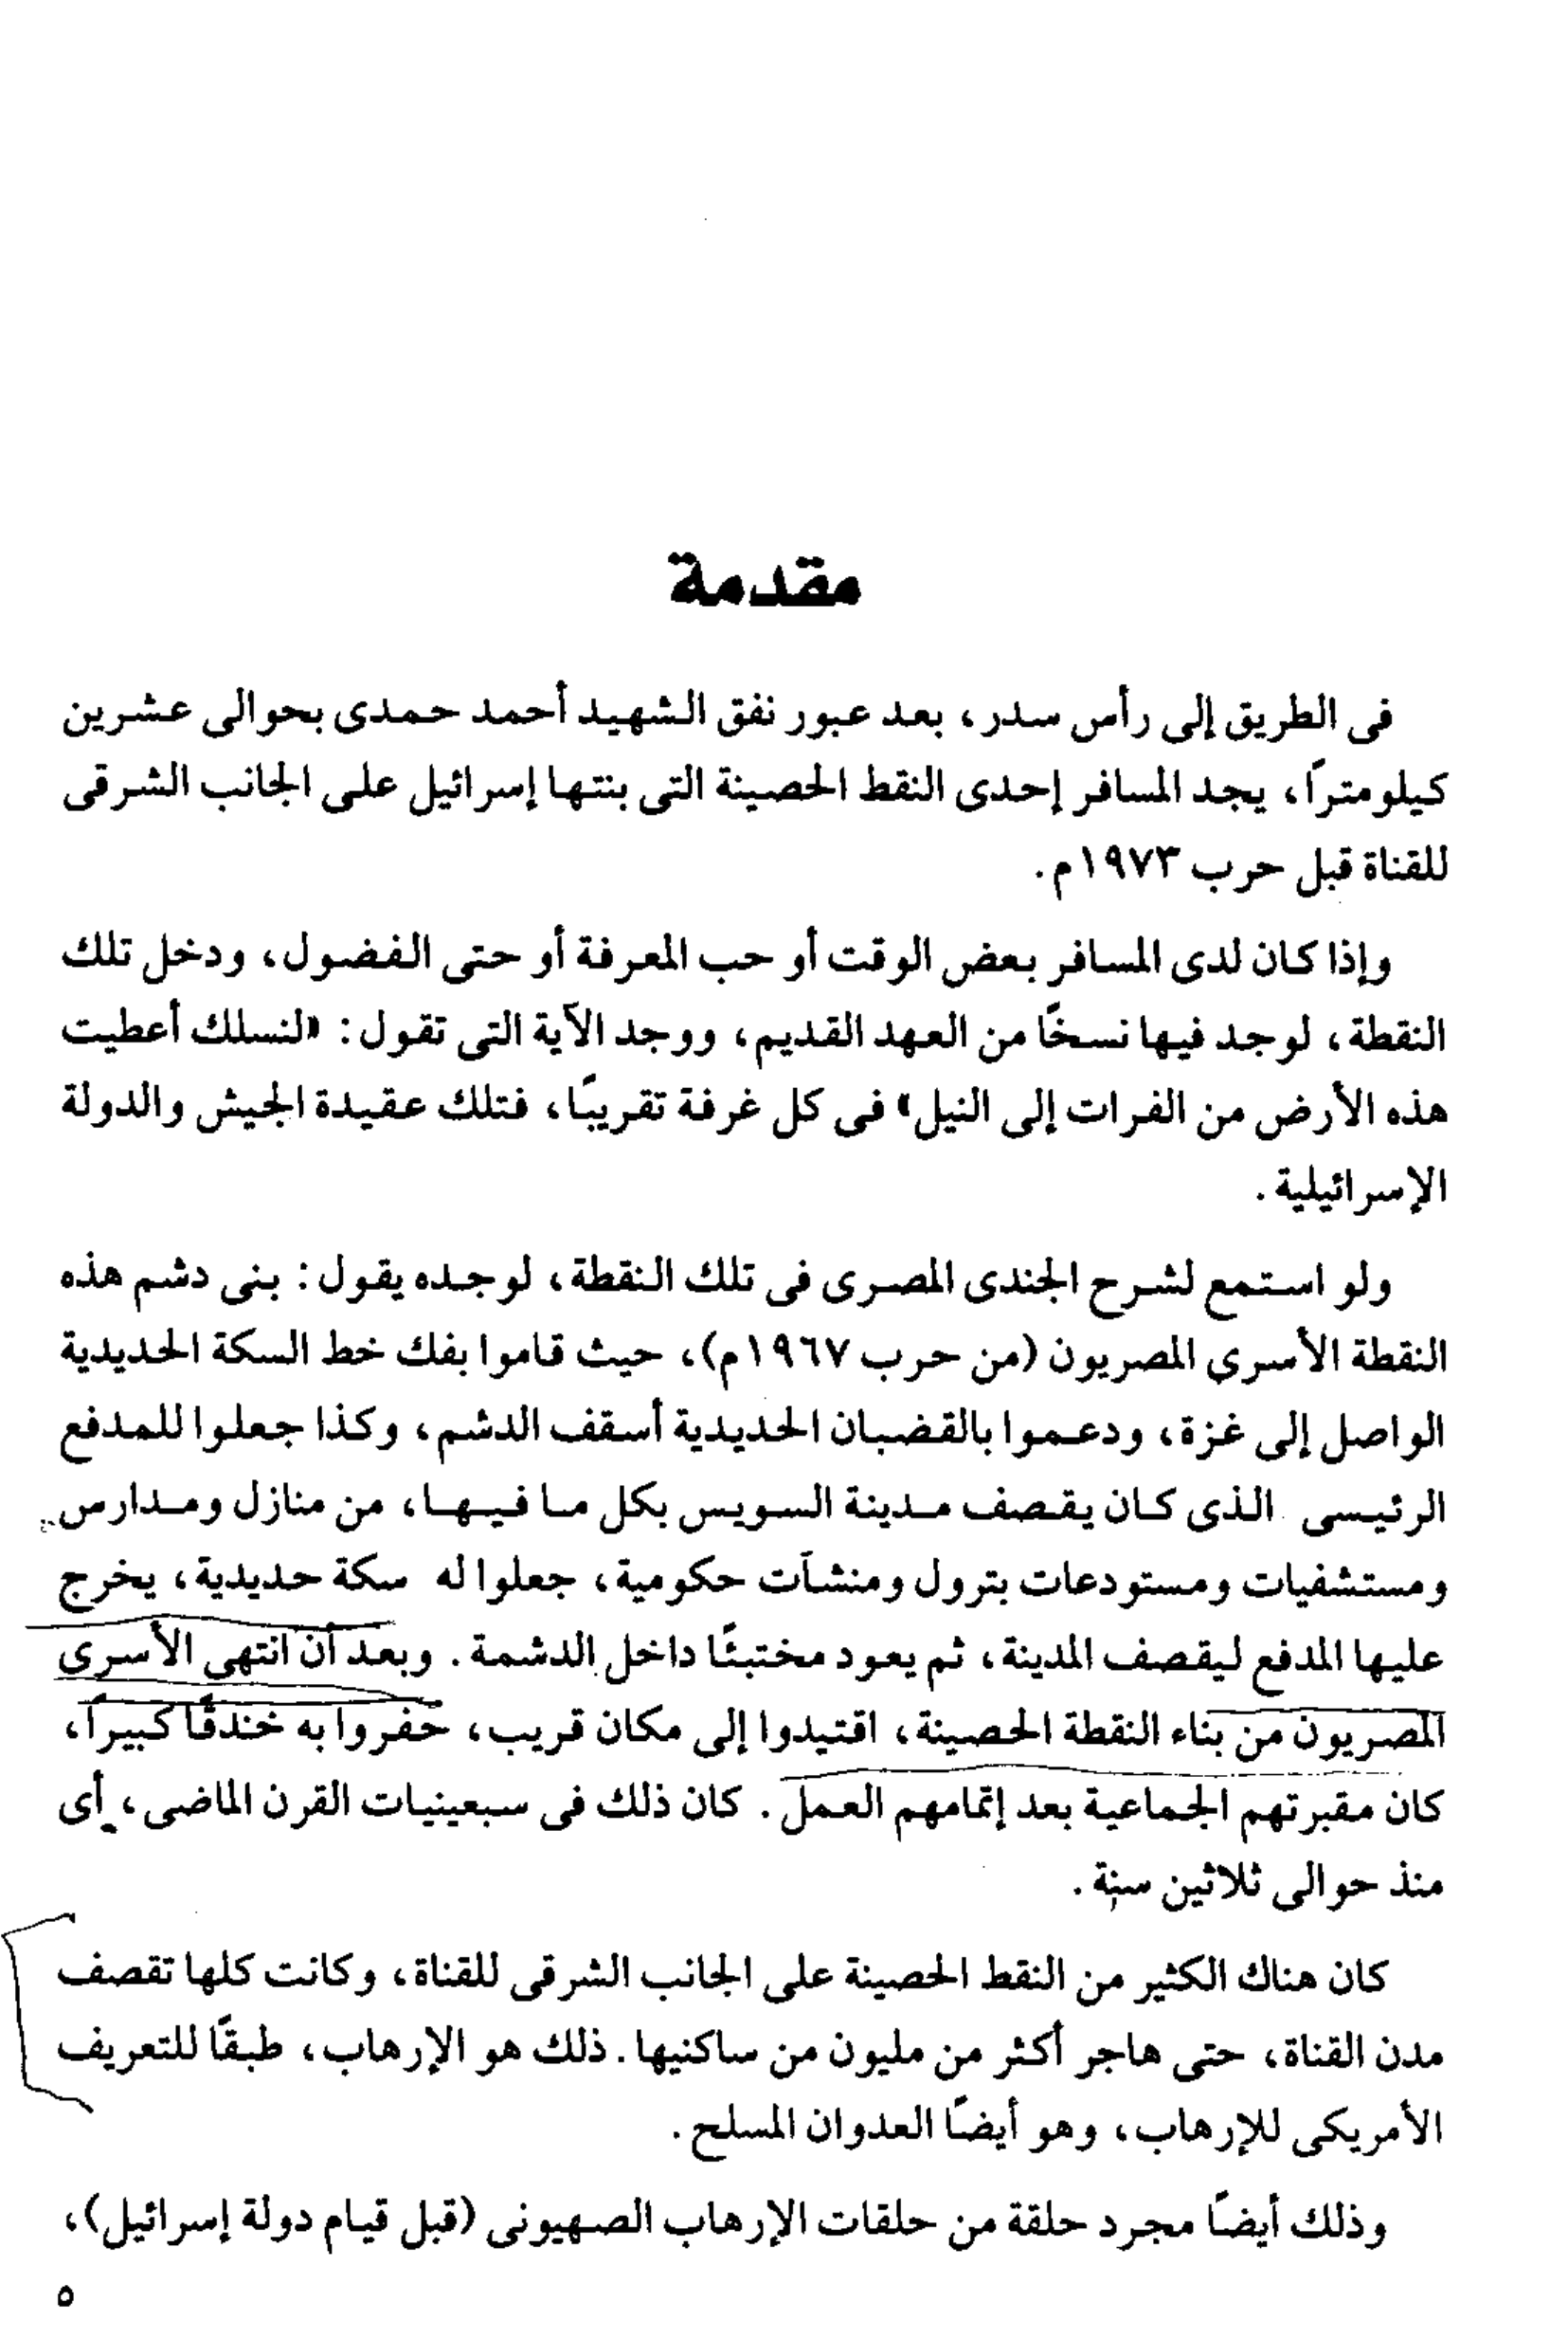 مقدمة
فى الطريق إلى رأس سدر، بعد عبور نفق الشهيد أحمد حمدى بحوالى عشرين
كيلومتراً، يجد المسافر إحدى النقط الحصينة التى بنتها إسرائيل على الجانب الشرقى
للقناة قبل حرب ١٩٧٣م.
وإذا كان لدى المسافر بعض الوقت أو حب المعرفة أو حتى الفضول، ودخل تلك
النقطة، لوجد فيها نسخًا من العهد القديم، ووجد الآية التى تقول: «لنسلك أعطيت
هذه الأرض من الفرات إلى النيل» فى كل غرفة تقريبًا، فتلك عقيدة الجيش والدولة
الإسرائيلية.
ولو استمع لشرح الجندى المصرى فى تلك النقطة، لوجده يقول: بنى دشم هذه
النقطة الأسرى المصريون (من حرب ١٩٦٧م)، حيث قاموا بفك خط السكة الحديدية
الواصل إلى غزة، ودعموا بالقضبان الحديدية أسقف الدشم، وكذا جعلوا للمدفع
الرئيسى الذى كان يقصف مدينة السويس بكل ما فيها، من منازل ومدارس
ومستشفيات ومستودعات بترول ومنشآت حكومية، جعلوا له سكة حديدية، يخرج
عليها المدفع ليقصف المدينة، ثم يعود مختبئًا داخل الدشمة. وبعد أن انتهى الأسرى
المصريون من بناء النقطة الحصينة، اقتيدوا إلى مكان قريب، حفروا به خندقًا كبيراً،
كان مقبرتهم الجماعية بعد إتمامهم العمل. كان ذلك فى سبعينيات القرن الماضى، أى
منذ حوالى ثلاثين سنة.
كان هناك الكثير من النقط الحصينة على الجانب الشرقى للقناة، وكانت كلها تقصف
مدن القناة، حتى هاجر أكثر من مليون من ساكنيها. ذلك هو الإرهاب، طبقًا للتعريف
الأمريكى للإرهاب، وهو أيضًا العدوان المسلح.
وذلك أيضًا مجرد حلقة من حلقات الإرهاب الصهيونى (قبل قيام دولة إسرائيل)،
٥